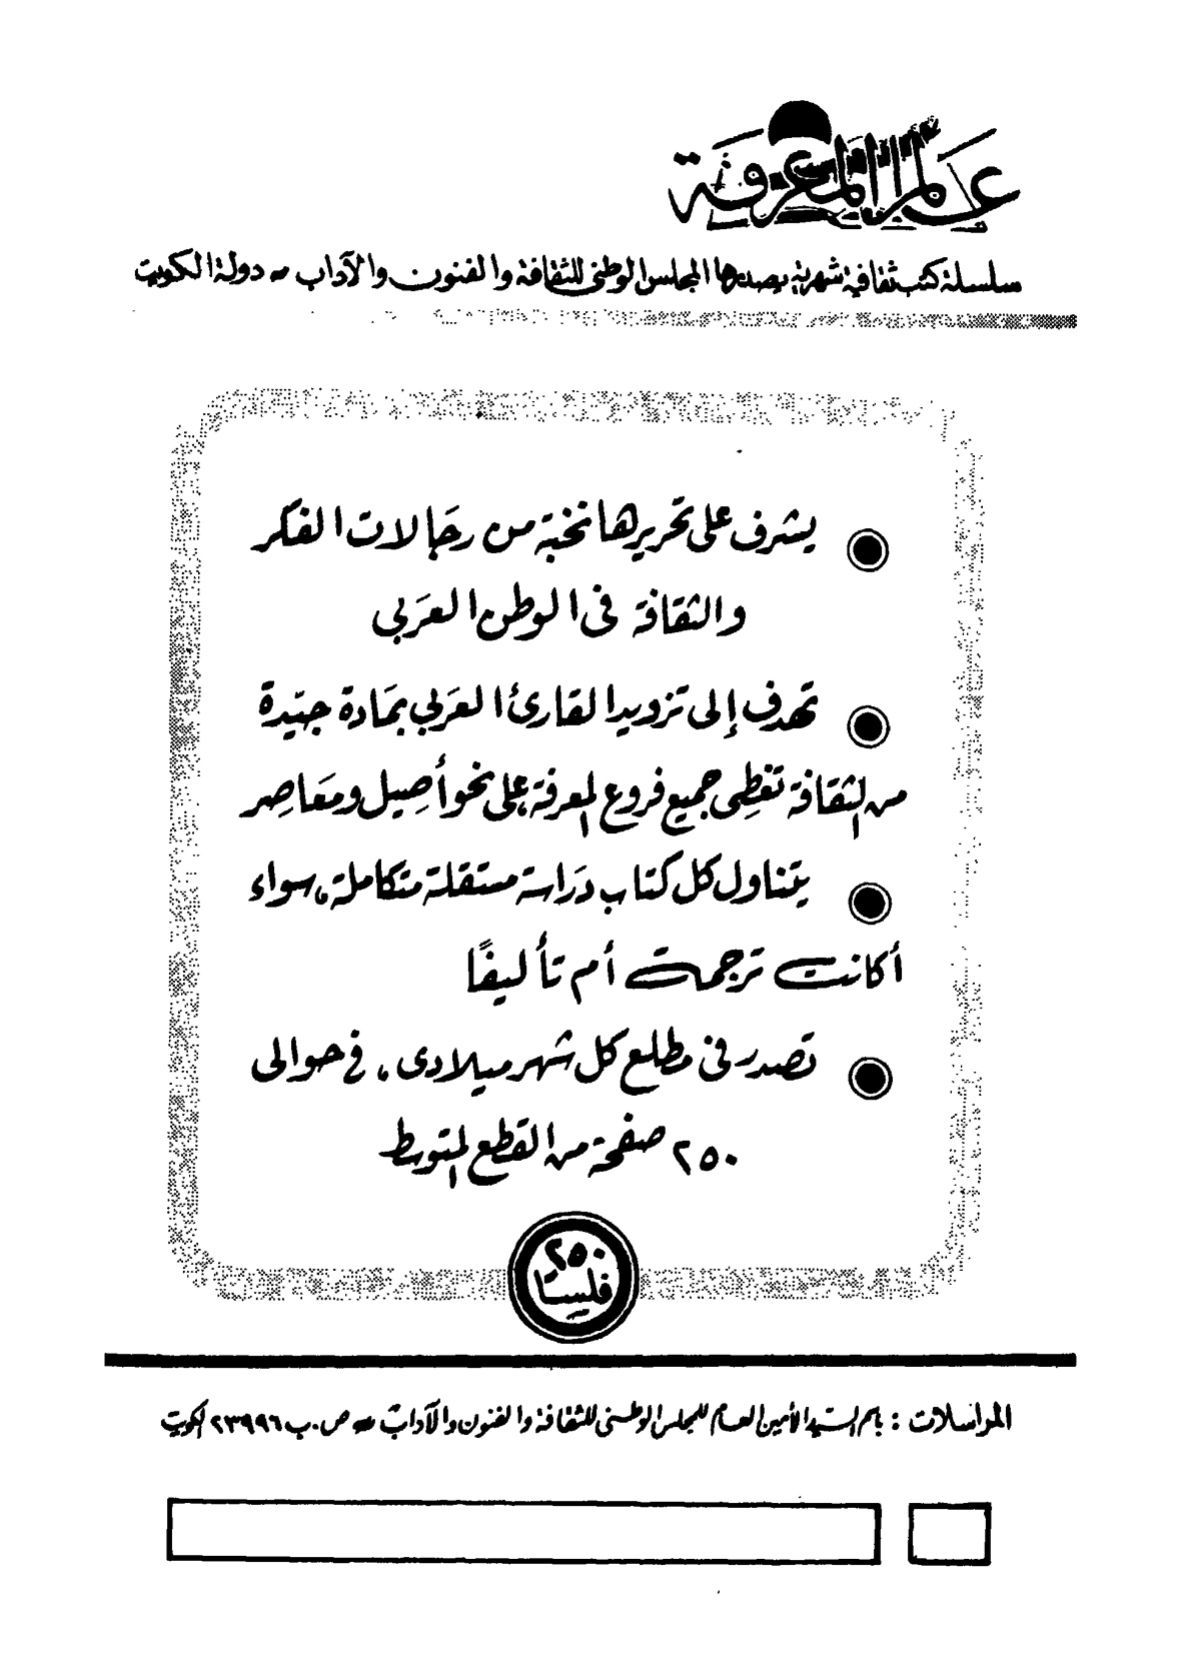 عالم المعرفة
سلسلة كتب ثقافية شهرية يصدرها المجلس الوطني للثقافة والفنون والآداب - دولة الكويت
يشرف على تحريرها نخبة من رجالات الفكر
والثقافة فى الوطن العربي
تهدف إلى تزويد القارئ العربي بمادة جيّدة
من الثقافة تغطي جميع فروع المعرفة، على نحو أصيل ومعاصر
يتناول كل كتاب دراسة مستقلة متكاملة، سواء
أكانت ترجمة أم تأليفًا
تصدر فى مطلع كل شهر ميلادى، في حوالى
٢٥٠ صفحة من القطع المتوسط
٢٥٠
فلسًا
المراسلات : باسم السيد الأمين العام للمجلس الوطني للثقافة والفنون والآداب - ص.ب ٢٣٩٩٦ الكويت